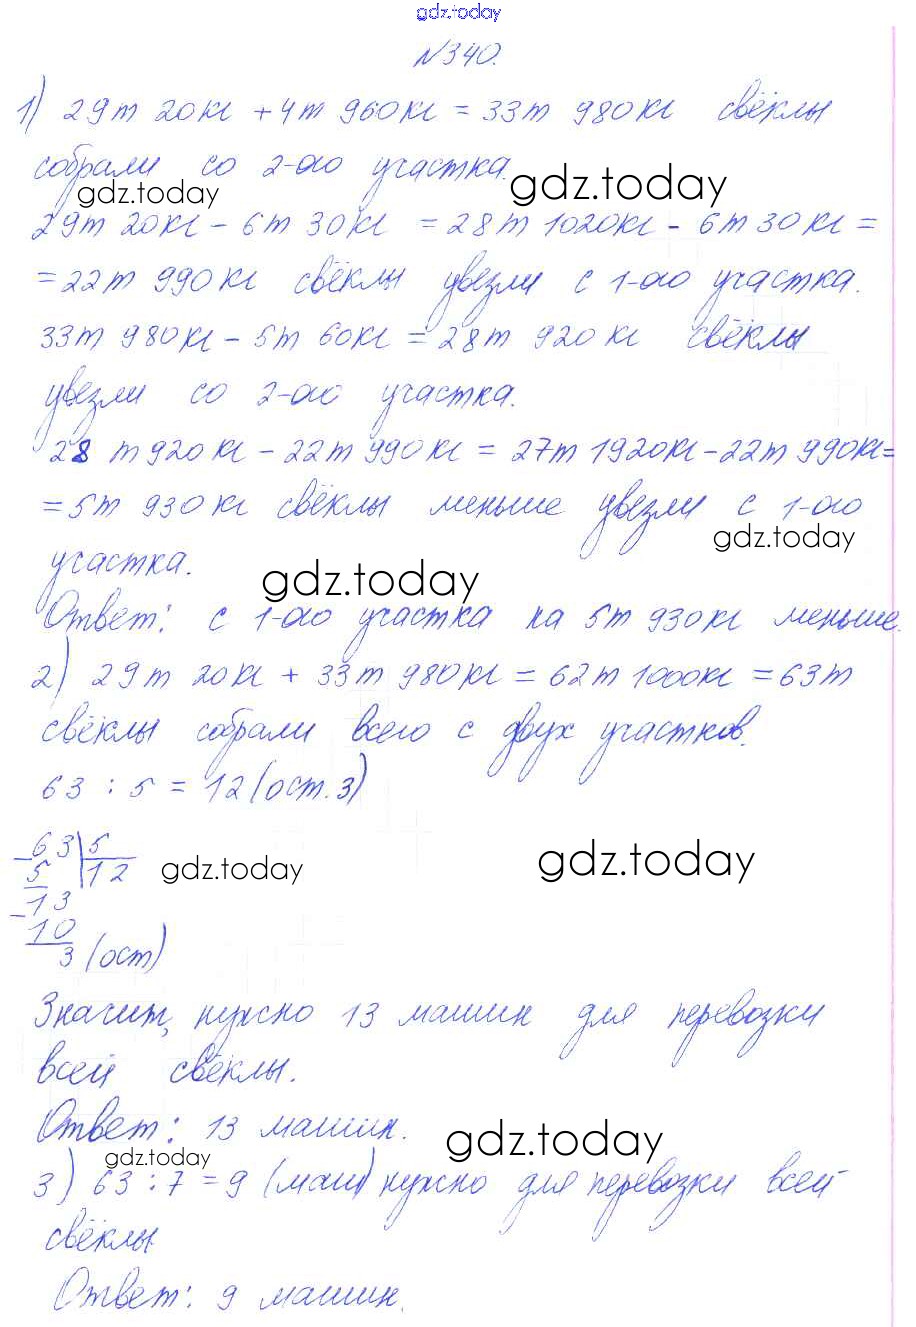 gdz.today
№340.
1) 29т 20кг + 4т 960кг = 33т 980кг свёклы
собрали со 2-ого участка.
gdz.today gdz.today
29т 20кг - 6т 30кг = 28т 1020кг - 6т 30кг =
= 22т 990кг свёклы увезли с 1-ого участка.
33т 980кг - 5т 60кг = 28т 920кг свёклы
увезли со 2-ого участка.
28т 920кг - 22т 990кг = 27т 1920кг - 22т 990кг =
= 5т 930кг свёклы меньше увезли с 1-ого
gdz.today
участка.
gdz.today
Ответ: с 1-ого участка на 5т 930кг меньше.
2) 29т 20кг + 33т 980кг = 62т 1000кг = 63т
свёклы собрали всего с двух участков.
63 : 5 = 12 (ост. 3)
63 5
5 12
gdz.today gdz.today
13
10
3 (ост)
Значит, нужно 13 машин для перевозки
всей свёклы.
Ответ: 13 машин.
gdz.today gdz.today
3) 63 : 7 = 9 (маш) нужно для перевозки всей
свёклы
Ответ: 9 машин.